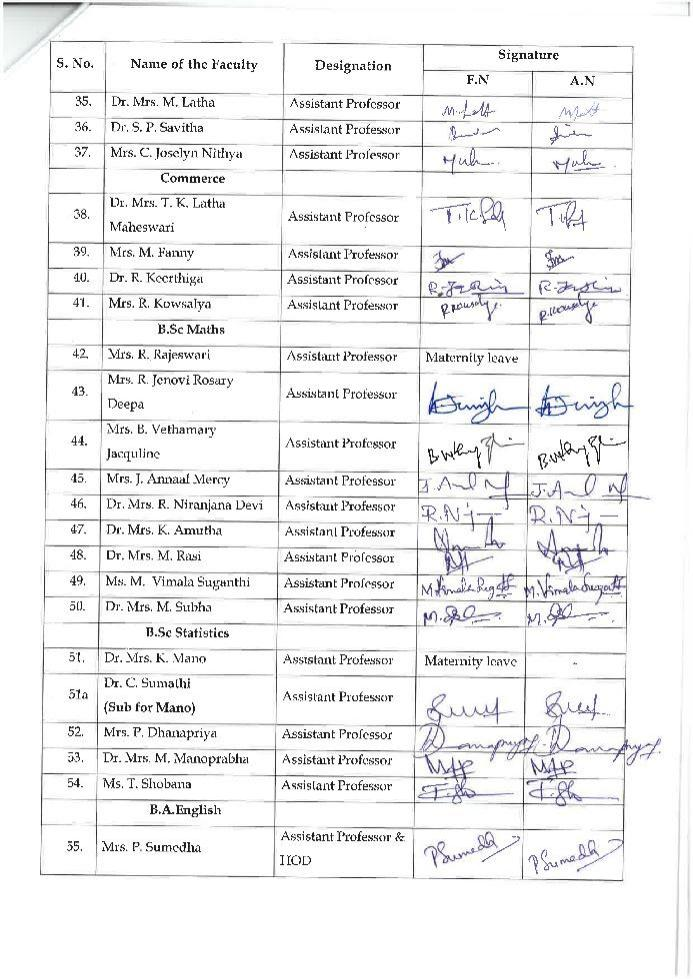 S. No. Name of the Faculty Designation Signature
F.N A.N
35. Dr. Mrs. M. Latha Assistant Professor
36. Dr. S. P. Savitha Assistant Professor
37. Mrs. C. Joselyn Nithya Assistant Professor
Commerce
38. Dr. Mrs. T. K. Latha
Maheswari Assistant Professor
39. Mrs. M. Fanny Assistant Professor
40. Dr. R. Keerthiga Assistant Professor
41. Mrs. R. Kowsalya Assistant Professor R.Kowsalya R.Kowsalya
B.Sc Maths
42. Mrs. R. Rajeswari Assistant Professor Maternity leave
43. Mrs. R. Jenovi Rosary
Deepa Assistant Professor
44. Mrs. B. Vethamary
Jacquline Assistant Professor
45. Mrs. J. Annaal Mercy Assistant Professor
46. Dr. Mrs. R. Niranjana Devi Assistant Professor
47. Dr. Mrs. K. Amutha Assistant Professor
48. Dr. Mrs. M. Rasi Assistant Professor
49. Ms. M. Vimala Suganthi Assistant Professor
50. Dr. Mrs. M. Subha Assistant Professor
B.Sc Statistics
51. Dr. Mrs. K. Mano Assistant Professor Maternity leave -
51a Dr. C. Sumathi
(Sub for Mano) Assistant Professor
52. Mrs. P. Dhanapriya Assistant Professor
53. Dr. Mrs. M. Manoprabha Assistant Professor
54. Ms. T. Shobana Assistant Professor
B.A.English
55. Mrs. P. Sumedha Assistant Professor &
HOD P Sumedha P Sumedha